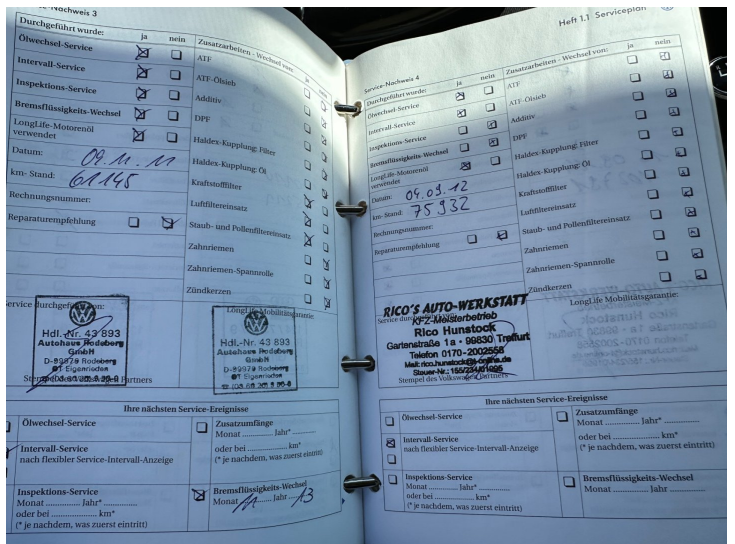 Service-Nachweis 3
Durchgeführt wurde: ja nein
Ölwechsel-Service
Intervall-Service
Inspektions-Service
Bremsflüssigkeits-Wechsel
LongLife-Motorenöl
verwendet
Datum: 09.11.11
km- Stand: 61145
Rechnungsnummer:
Reparaturempfehlung
Zusatzarbeiten - Wechsel von: ja
ATF
ATF-Ölsieb
Additiv
DPF
Haldex-Kupplung: Filter
Haldex-Kupplung: Öl
Kraftstofffilter
Luftfiltereinsatz
Staub- und Pollenfiltereinsatz
Zahnriemen
Zahnriemen-Spannrolle
Zündkerzen
Service durchgeführt von:
Hdl.-Nr. 43 893
Autohaus Rodeberg
GmbH
D-99976 Rodeberg
OT Eigenrieden
Stempel des Volkswagen Partners
LongLife Mobilitätsgarantie:
Hdl.-Nr. 43 893
Autohaus Rodeberg
GmbH
D-99976 Rodeberg
OT Eigenrieden
Ihre nächsten Service-Ereignisse
Ölwechsel-Service
Intervall-Service
nach flexibler Service-Intervall-Anzeige
Inspektions-Service
Monat .............. Jahr* ..............
oder bei .............. km*
(* je nachdem, was zuerst eintritt)
Zusatzumfänge
Monat .............. Jahr* ..............
oder bei .............. km*
(* je nachdem, was zuerst eintritt)
Bremsflüssigkeits-Wechsel
Monat 11 Jahr 13
Heft 1.1 Serviceplan
Service-Nachweis 4
Durchgeführt wurde: ja nein
Ölwechsel-Service
Intervall-Service
Inspektions-Service
Bremsflüssigkeits-Wechsel
LongLife-Motorenöl
verwendet
Datum: 04.09.12
km- Stand: 75932
Rechnungsnummer:
Reparaturempfehlung
Zusatzarbeiten - Wechsel von: ja nein
ATF
ATF-Ölsieb
Additiv
DPF
Haldex-Kupplung: Filter
Haldex-Kupplung: Öl
Kraftstofffilter
Luftfiltereinsatz
Staub- und Pollenfiltereinsatz
Zahnriemen
Zahnriemen-Spannrolle
Zündkerzen
Service durchgeführt von:
RICO'S AUTO-WERKSTATT
KFZ-Meisterbetrieb
Rico Hunstock
Gartenstraße 1a • 99830 Treffurt
Telefon 0170-2002558
Mail: rico.hunstock@t-online.de
Steuer-Nr.: 155/234/01095
Stempel des Volkswagen Partners
LongLife Mobilitätsgarantie:
Ihre nächsten Service-Ereignisse
Ölwechsel-Service
Intervall-Service
nach flexibler Service-Intervall-Anzeige
Inspektions-Service
Monat .............. Jahr* ..............
oder bei .............. km*
(* je nachdem, was zuerst eintritt)
Zusatzumfänge
Monat .............. Jahr* ..............
oder bei .............. km*
(* je nachdem, was zuerst eintritt)
Bremsflüssigkeits-Wechsel
Monat .............. Jahr ..............